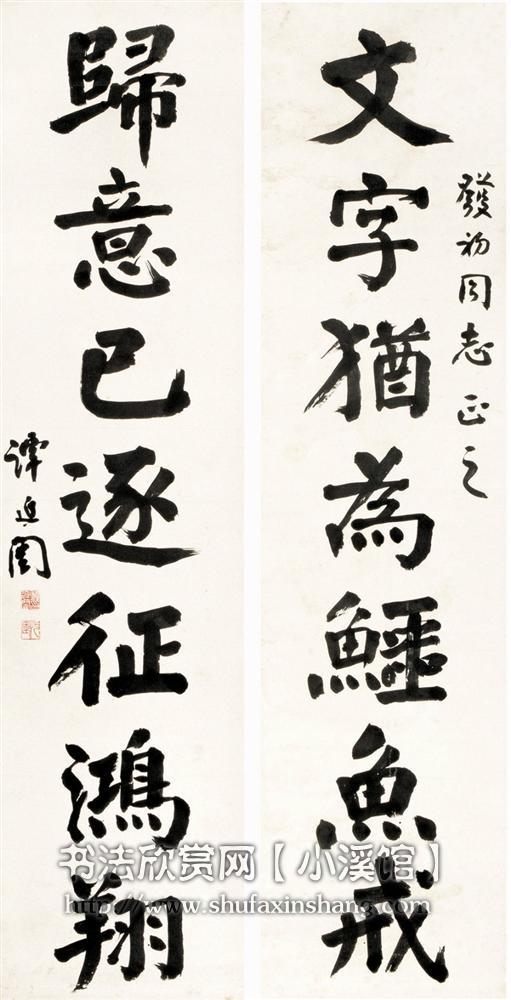 發初同志正之
文字猶為鱷魚戒
歸意已逐征鴻翔
譚延闓
书法欣赏网【小溪馆】
http://www.shufaxinshang.com